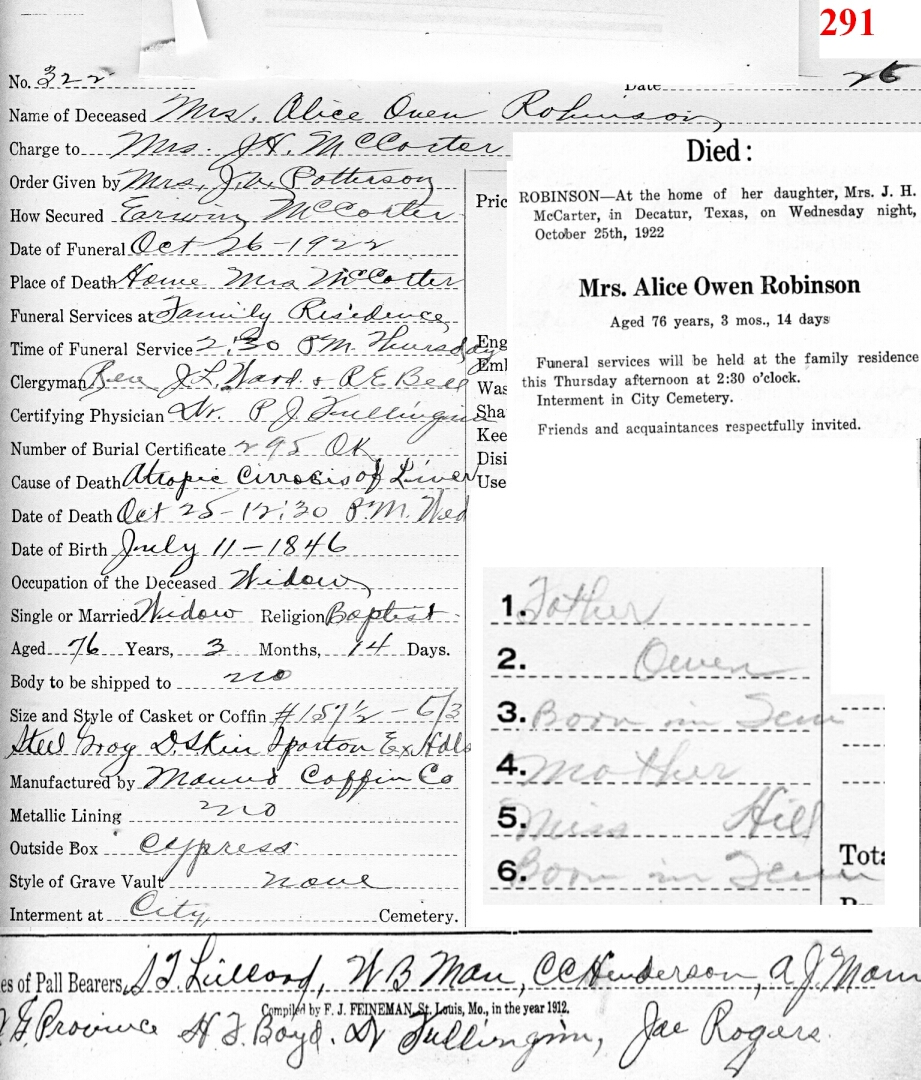 291
No. 322 Date 26
Name of Deceased Mrs. Alice Owen Robinson
Charge to Mrs. J.H. McCarter
Order Given by Mrs. J.W. Patterson
How Secured Erwin McCarter
Date of Funeral Oct 26-1922
Place of Death Home Mrs McCarter
Funeral Services at Family Residence
Time of Funeral Service 2:30 P.M. Thursday
Clergyman Rev J.L. Ward & R E Bell
Certifying Physician Dr. P J Fullingim
Number of Burial Certificate 295 OK
Cause of Death Atropic Cirrosis of Liver
Date of Death Oct 25-12:30 P.M. Wed
Date of Birth July 11-1846
Occupation of the Deceased Widow
Single or Married Widow Religion Baptist
Aged 76 Years, 3 Months, 14 Days.
Body to be shipped to no
Size and Style of Casket or Coffin # 157½ - 6/3
Steel Gray D. Skin Sparton Ex Hdls
Manufactured by Coffin Co
Metallic Lining no
Outside Box Cypress
Style of Grave Vault none
Interment at City Cemetery.
Pric
Eng
Emb
Was
Sha
Kee
Disi
Use
Died:
ROBINSON—At the home of her daughter, Mrs. J. H.
McCarter, in Decatur, Texas, on Wednesday night,
October 25th, 1922
Mrs. Alice Owen Robinson
Aged 76 years, 3 mos., 14 days
Funeral services will be held at the family residence
this Thursday afternoon at 2:30 o'clock.
Interment in City Cemetery.
Friends and acquaintances respectfully invited.
1. Father
2. Owen
3. Born in Tenn
4. Mother
5. Miss Hill
6. Born in Tenn
Tota
es of Pall Bearers, S T Lillard, W B Man, C C Henderson, A J Mann
Compiled by F. J. FEINEMAN, St. Louis, Mo., in the year 1912.
Province H T Boyd. Dr Fullingim, Joe Rogers.